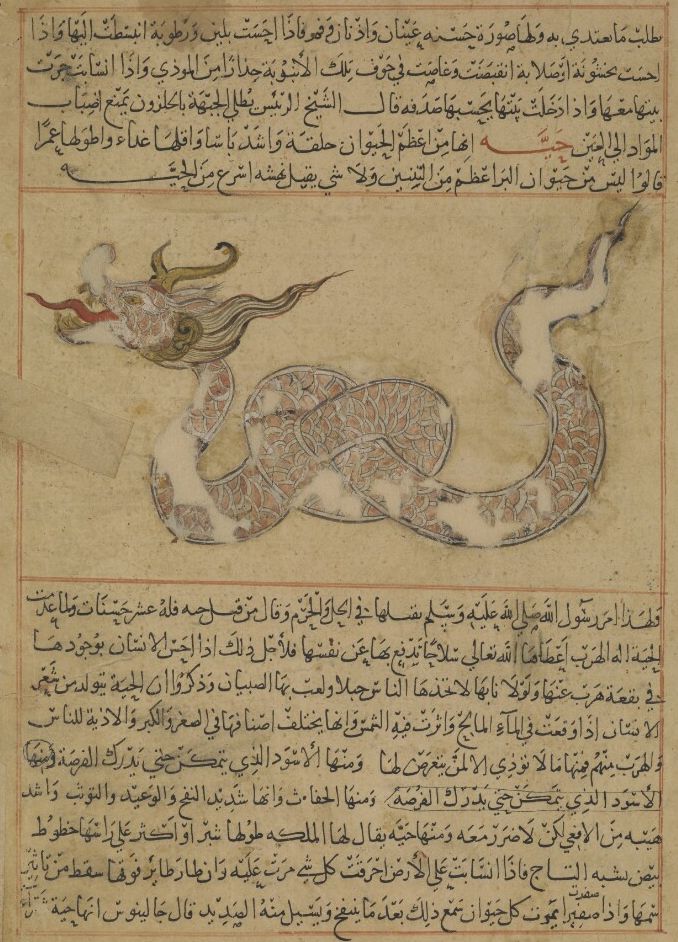 يطلب ما يغتدي به ولها صورة حسنه عينان واذنان وفم فاذا احست بلين ورطوبة انبسطت اليها واذا
احست بخشونة او صلابة انقبضت وغاصت في جوف تلك الانبوبة حذارا من الموذي واذا انسابت جرت
بيتها معها واذا دخلت بيتها يحسبها صدفه قال الشيخ الرئيس يطلي الجبهة بالحلزون يمنع انصباب
المواد الي العين حيــه انها من اعظم الحيوان خلقة واشد باسا واقلها غداء واطولها عمرا
قالوا ليس من حيوان البر اعظم من التنين ولا شي يقبل نهشه اسرع من الحيــه
ولهذا امر رسول الله صلي الله عليه وسلم بقتلها في الحل والحرم وقال من قتل حيه فله عشر حسنات ولما عدمت
الحية اله الهرب اعطاها الله تعالي سلاحا تدفع بها عن نفسها فلاجل ذلك اذا احس الانسان بوجودها
في بقعة هرب عنها ولولا نابها لاتخذها الناس حبلا ولعب بها الصبيان وذكروا ان الحية يتولد من شعر
الانسان اذا وقعت في الماء المالح واثرت فيه الشمس وانها يختلف اصنافها في الصغر والكبر والاذية للناس
والهرب منهم فمنها ما لا توذي الا لمن يتعرض لها ومنها الاسود الذي يتمكن حتي يدرك الفرصة ومنها
الاسود الذي يتمكن حتي يدرك الفرصة ومنها الحفاث وانها شديد النفخ والوعيد والتوثب واشد
هيبه من الافعي لكن لا ضرر معه ومنها حيه يقال لها الملكه طولها شبر او اكثر علي راسها خطوط
بيض يشبه التاج فاذا انسابت علي الارض احرقت كل شي مرت عليه وان طار طاير فوقها سقط من تاثير
سمها واذا صفرت صفيرا يموت كل حيوان سمع ذلك بعد ما ينتفخ ويسيل منه الصديد قال جالينوس انها حية